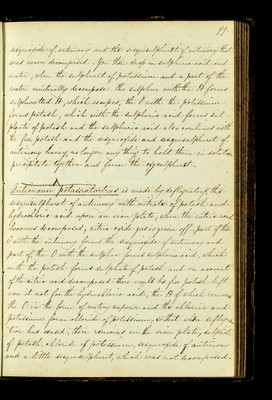 99.
sesquioxide of antimony and the sesquisulphuret of antimony that
was never decomposed. You then drop in sulphuric acid and
water, when the sulphuret of potassium and a part of the
water mutually decompose. the sulphur with the H forms
sulphuretted H, which escapes, the O with the potassium
forms potash, which with the sulphuric acid forms sul
phate of potash and the sulphuric acid also combines with
the free potash and the sesquioxide and sesquisulphuret of
antimony having no longer any thing to hold them in solution
precipitate together and form the oxysulphuret.
Antimonii potassio tartras is made by deflagrating the
sesquisulphuret of antimony with nitrate of potash and
hydrochloric acid upon an iron plate, when the nitric acid
becomes decomposed, nitric oxide gas is given off part of the
O with the antimony forms the sesquioxide of antimony and
part of the O with the sulphur forms sulphuric acid, which
with the potash forms sulphate of potash and on account
of the nitric acid decomposed there would be free potash left
was it not for the hydrochloric acid, the H of which removes
the O in the form of watery vapour and the chlorine and
potassium form chloride of potassium, so that when deflagra
tion has ceased, there remains on the iron plate, sulphate
of potash, chloride of potassium, sesquioxide of antimony
and a little sesquisulphuret, which was not decomposed.